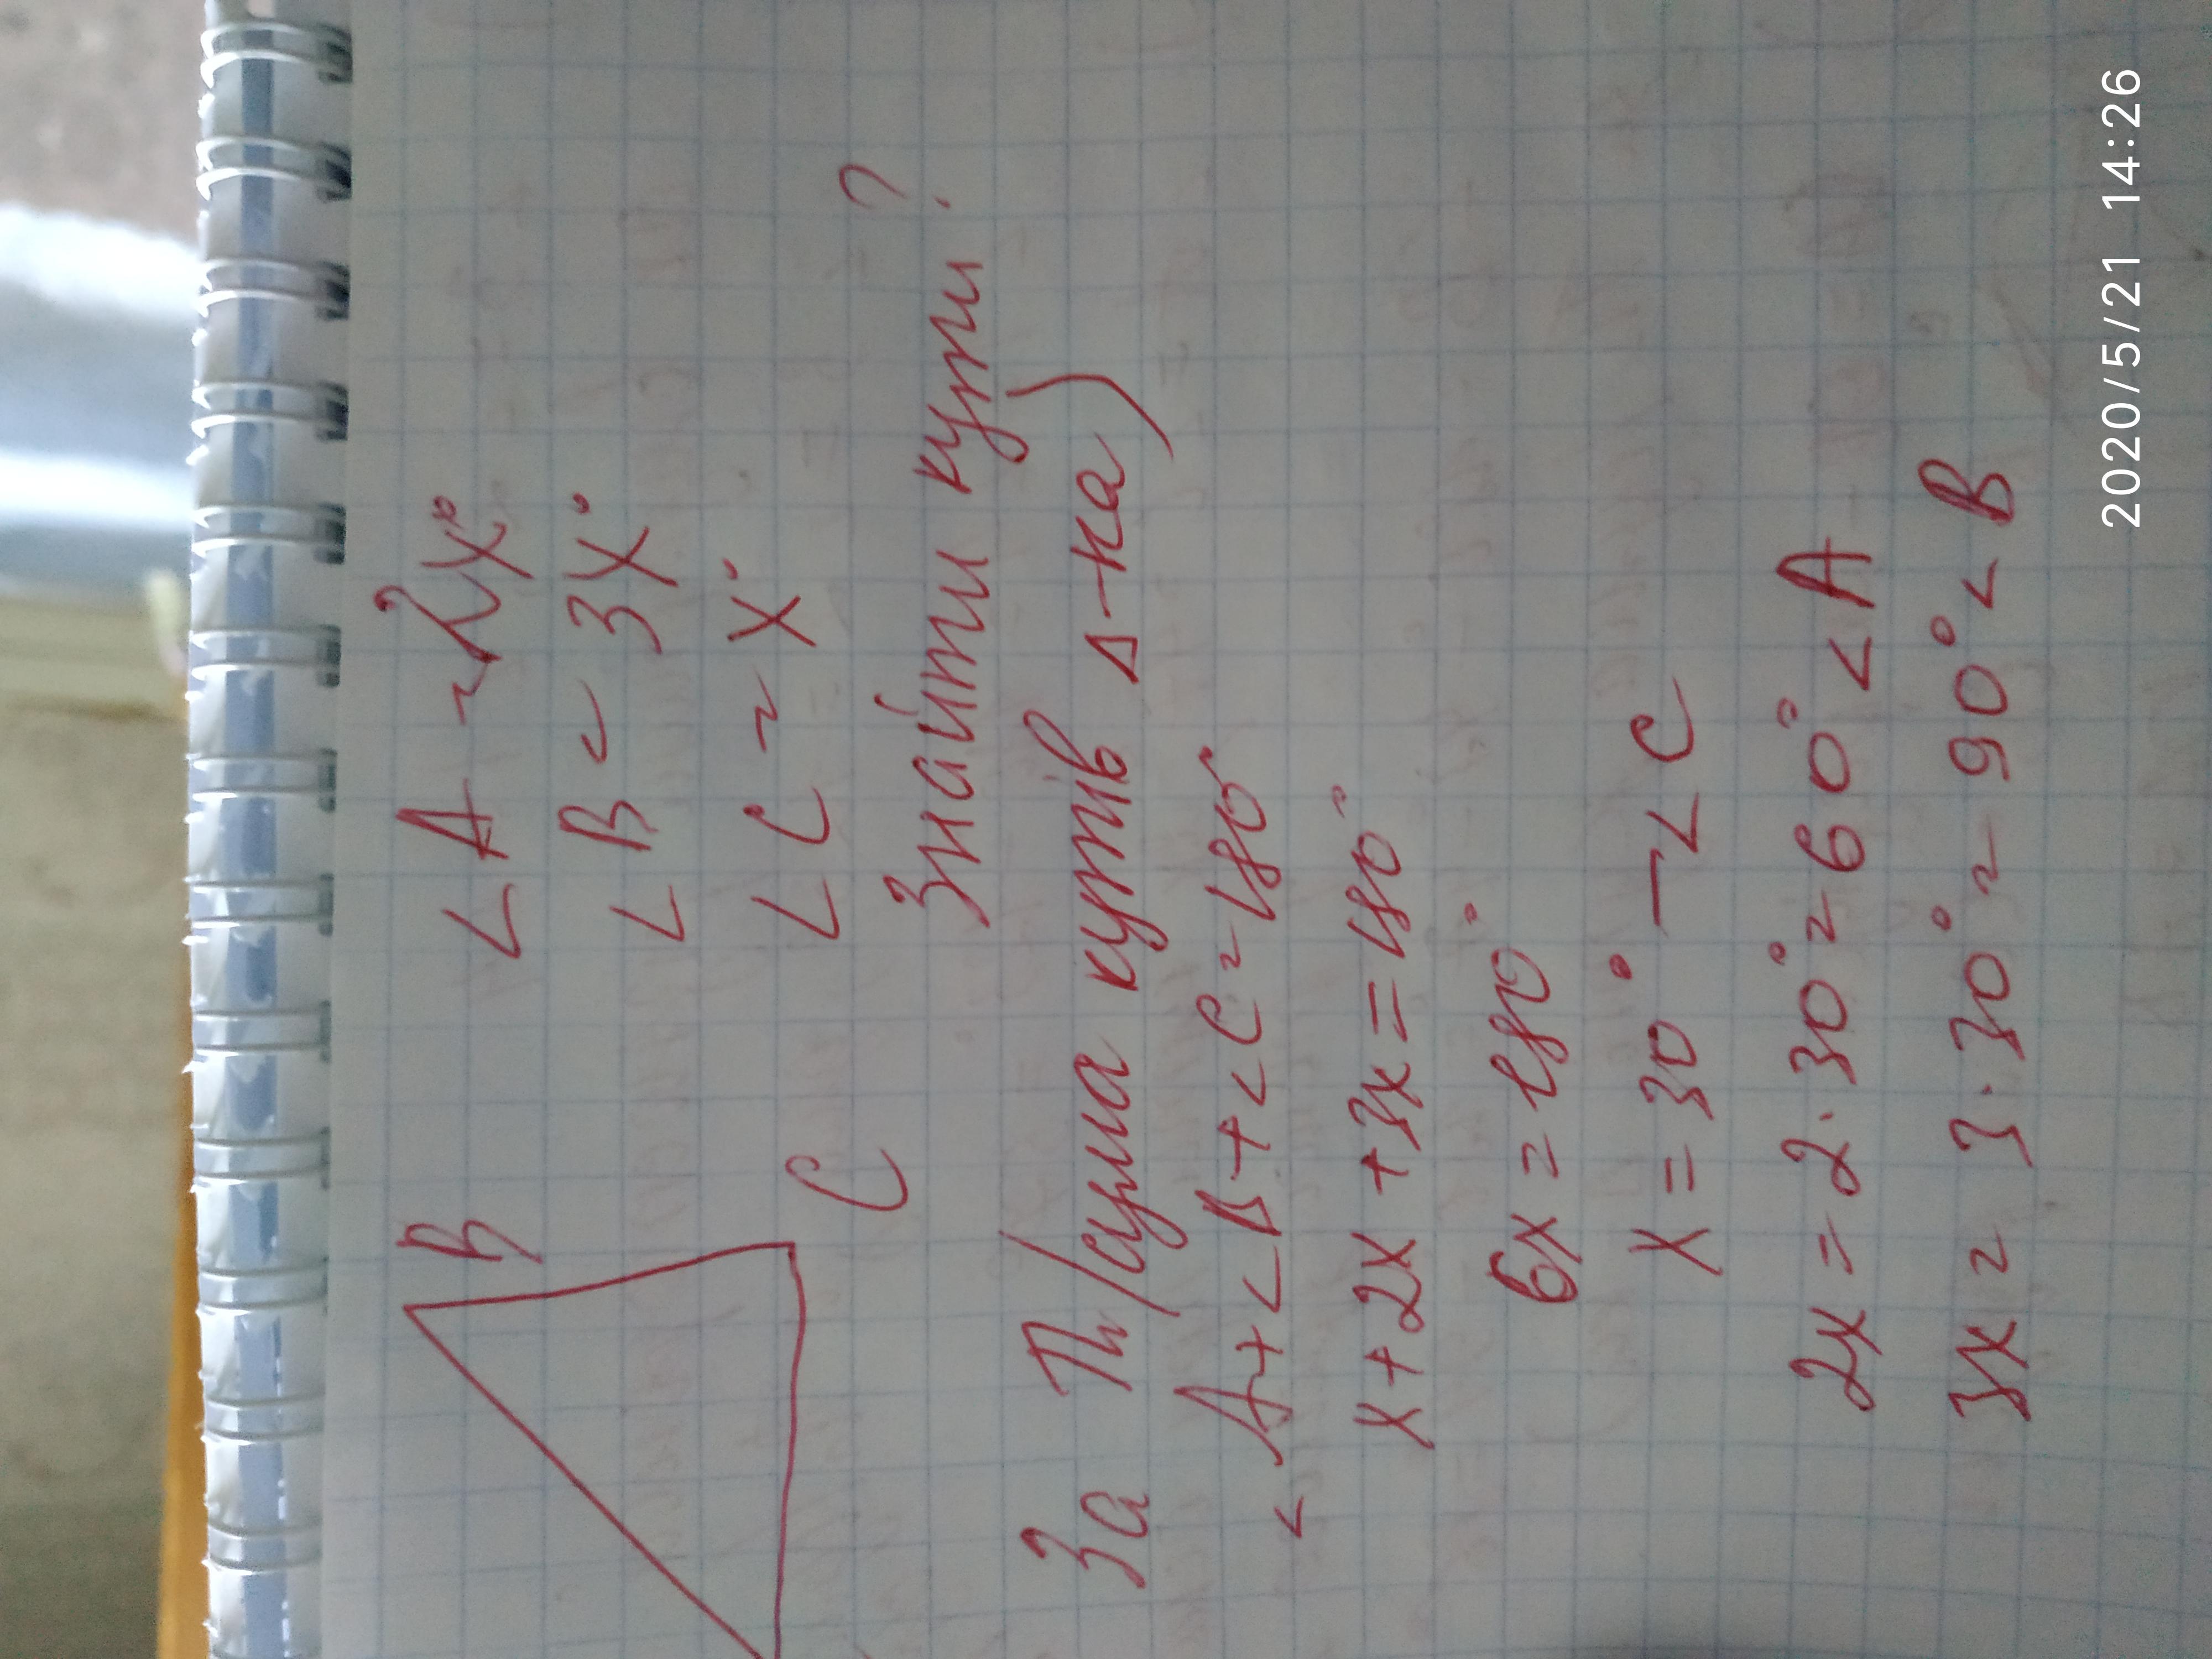 B
C
<A = 2x°
<B = 3x°
<C = x°
Знайти кути ?
За Т. (сума кутів Δ-ка)
<A+<B+<C=180°
x+2x+3x=180°
6x=180°
x=30° - <C
2x=2·30°=60° <A
3x=3·30°=90° <B
2020/5/21 14:26